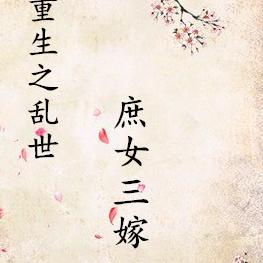 重生之乱世
庶女三嫁